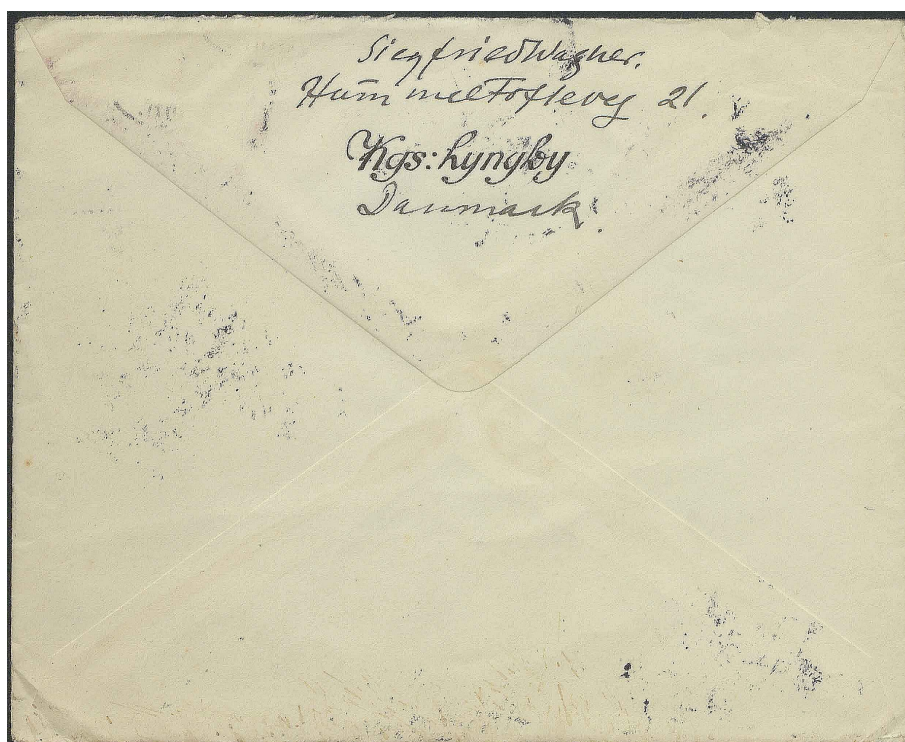 Siegfried Wagner.
Hummeltoftevej 21
Kgs: Lyngby
Danmark.